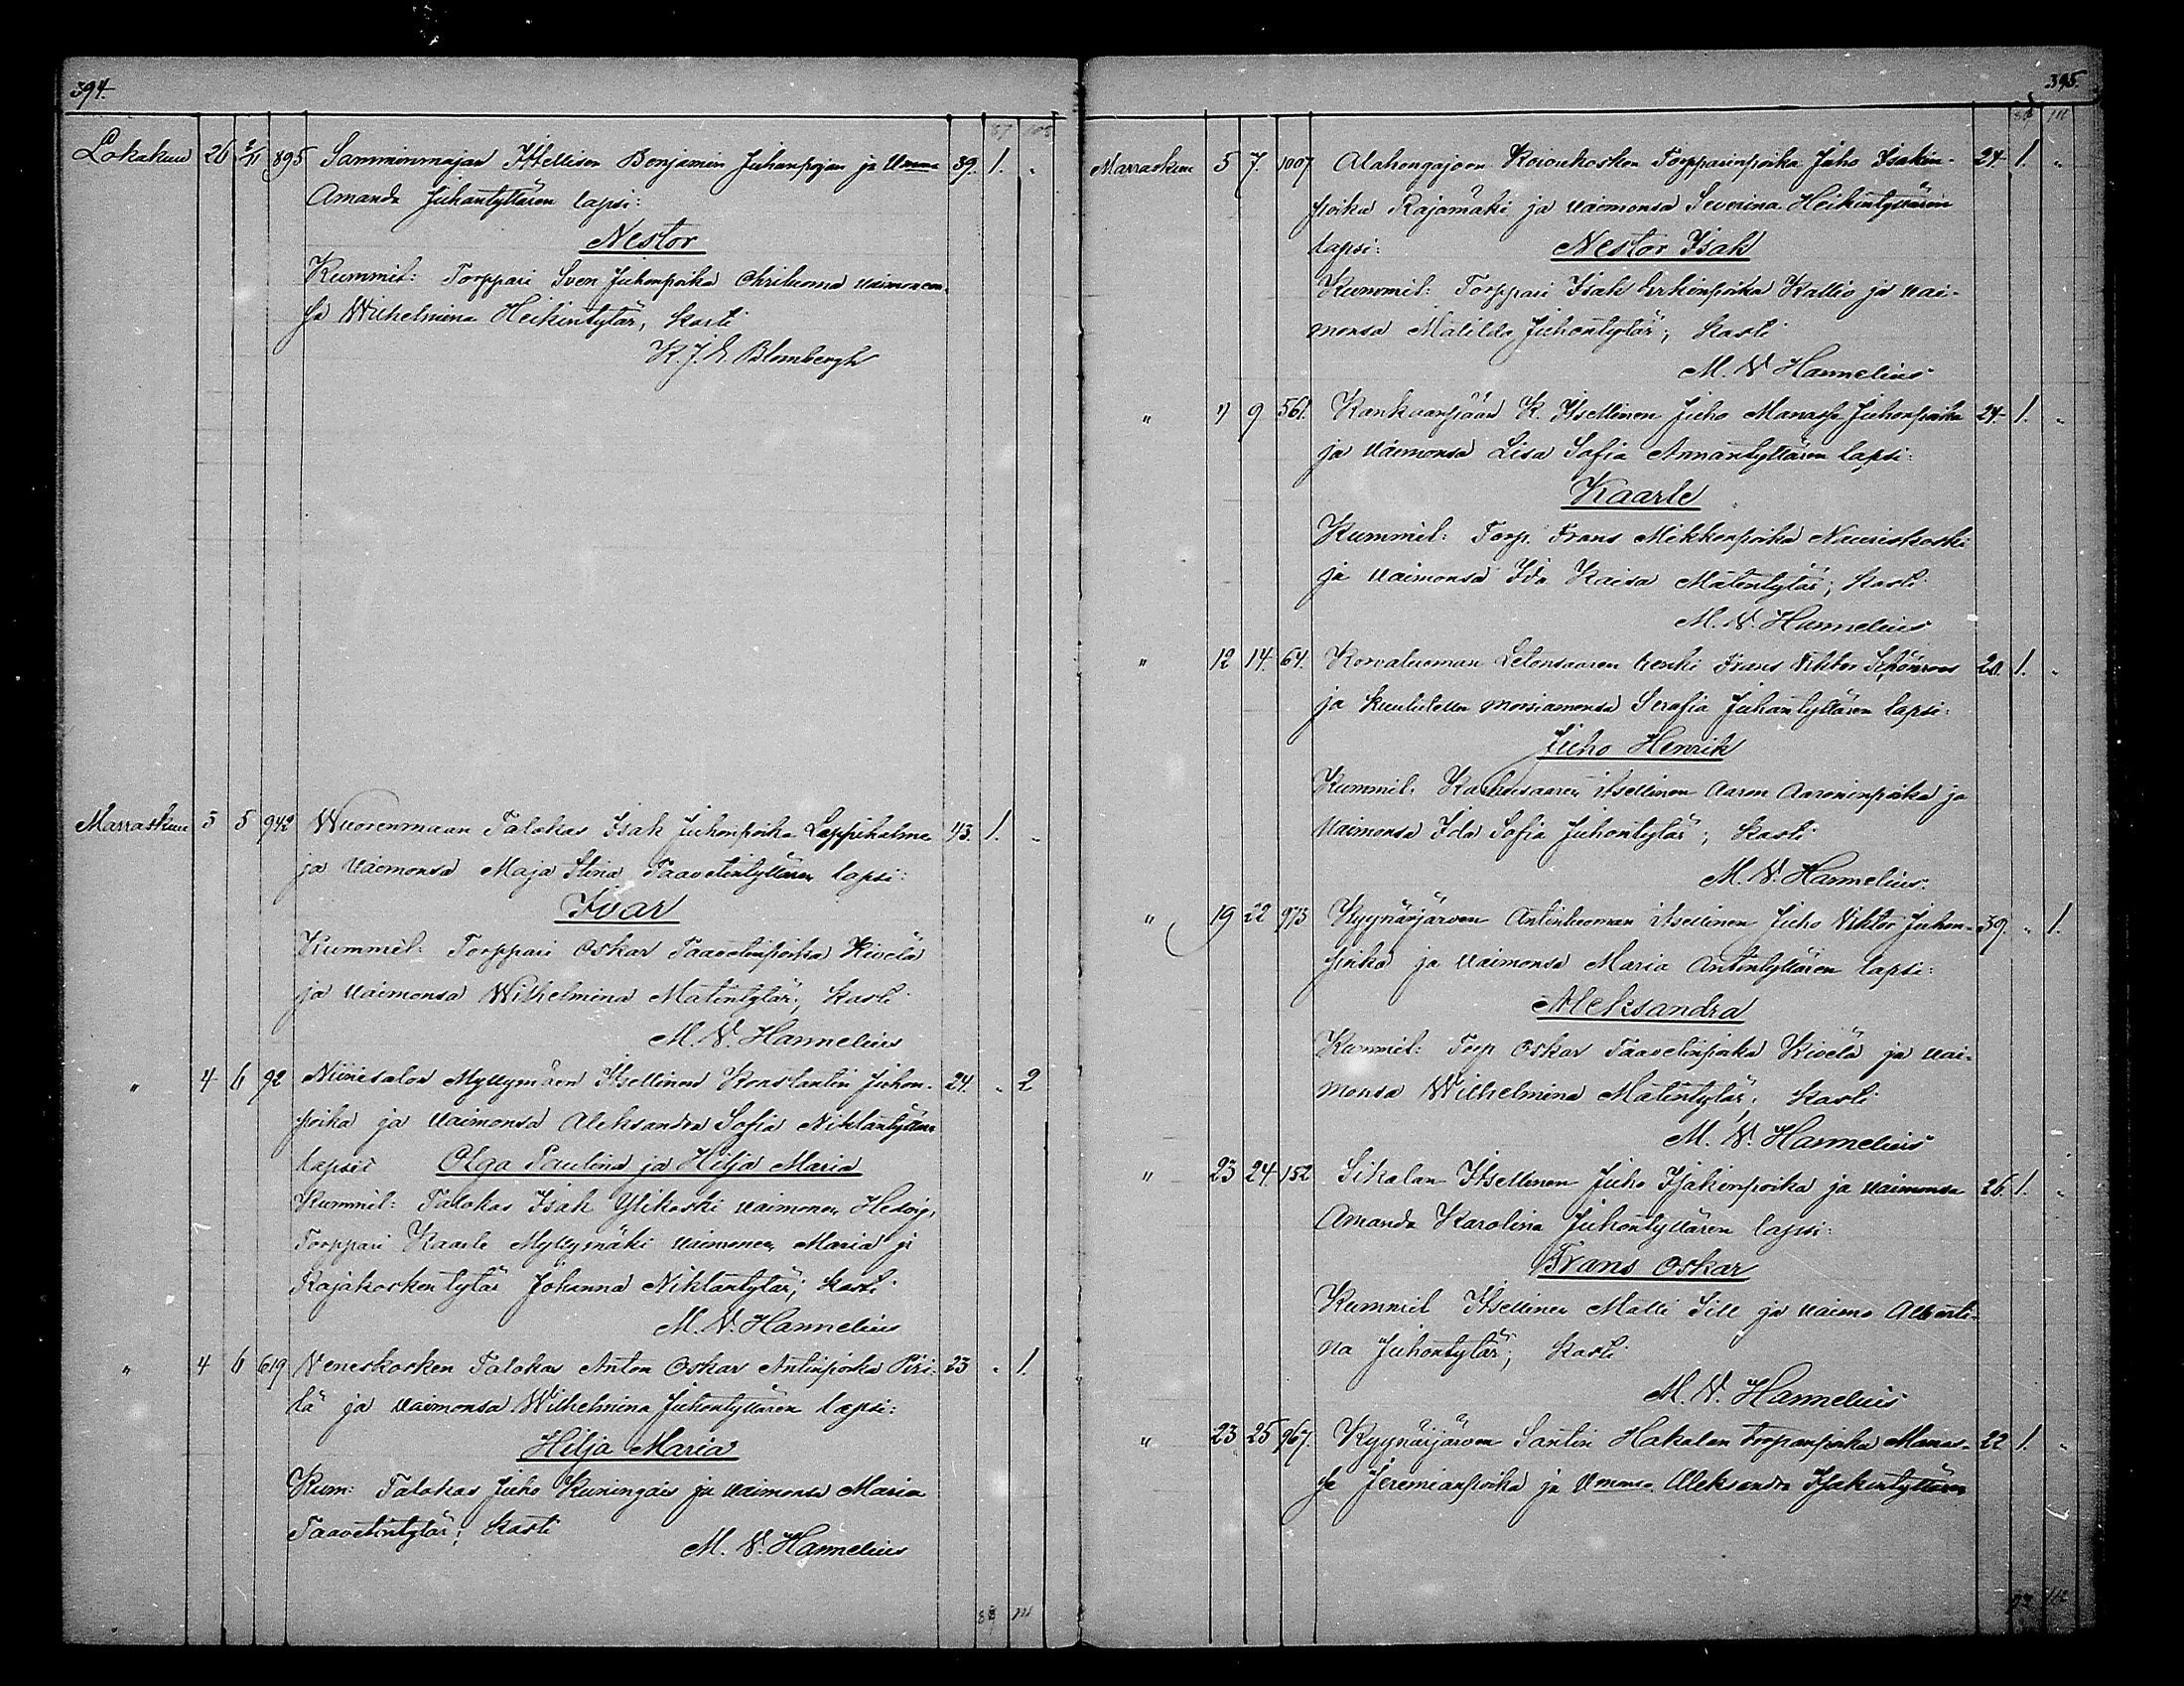 394.
87 108
Lokakuu 26 2/11 895 Samminmajan Itsellisen Benjamin Juhanpojan ja Vmonsa 39. 1. "
Amanda Juhantyttären lapsi:
Nestor
Kummit: Torppari Sven Juhonpoika vaimonen-
sa Wilhelmina Heikintytär, kasti
K. J. E. Blombergh
Marraskuu 3 5 942 Wuorenmaan Talokas Isak Juhonpoika Leppihalme 43. 1. "
ja vaimonsa Maja Stina Taavetintyttären lapsi:
Ivar
Kummit: Torppari Oskar Taavetinpoika Kivelä
ja vaimonsa Wilhelmina Matintytär; kasti
M. V. Hannelius
" 4 6 92 Niinisalon Myllymäen Itsellinen Konstantin Juhon- 24. " 2
poika ja vaimonsa Aleksandra Sofia Niklantyttären
lapset Olga Paulina ja Hilja Maria
Kummit: Talokas Isak Ylikoski vaimonen Hedvig,
Torppari Kaarle Myllymäki vaimonen Maria ja
Rajakosken tytär Johanna Niklantytär; kasti
M. V. Hannelius
" 4 6 619 Veneskosken Talokas Anton Oskar Antinpoika Piri- 23 " 1.
lä ja vaimonsa Wilhelmina Juhontyttären lapsi:
Hilja Maria
Kum: Talokas Juho Kuningais ja vaimonsa Maria
Taavetintytär; kasti
M. V. Hannelius
111
395.
111
Marraskuu 5 7. 1007 Alahongajoen Koivukosken Torpparinpoika Juho Isakin- 24. 1. "
poika Rajamäki ja vaimonsa Severina Heikintyttären
lapsi: Nestor Isak
Kummit: Torppari Isak Erkinpoika Kallio ja vai-
monsa Matilda Juhontytär; kasti
M. V. Hannelius
" 7 9 561. Kankaanpään K. Itsellinen Juho Manasse Juhonpoika 24. 1. "
ja vaimonsa Lisa Sofia Annantyttären lapsi:
Kaarle
Kummit: Torp. Frans Mikkonpoika Nauriskoski
ja vaimonsa Ida Kaisa Matintytär; kasti
M. V. Hannelius
" 12 14. 64. Korvaluoman Letonsaaren renki Frans Viktor 20. 1. "
ja kuulutettu morsiamensa Serafia Juhantyttären lapsi:
Juho Henrik
Kummit: itsellinen Aaron Aaroninpoika ja
vaimonsa Ida Sofia Juhontytär; kasti
M. V. Hannelius.
" 19 22 973 Kyynärjärven Antinluoman itsellinen Juho Viktor Juhon- 39. " 1.
poika ja vaimonsa Maria Antintyttären lapsi:
Aleksandra
Kummit: Torp Oskar Taavetinpoika Kivelä ja vai-
monsa Wilhelmina Matintytär; kasti
M. V. Hannelius
" 23 24 152 Sikalan Itsellinen Juho Isakinpoika ja vaimonsa 26. 1. "
Amanda Karolina Juhontyttären lapsi:
Frans Oskar
Kummit Itsellinen Matti Sill ja vaimo Alberti-
na Juhontytär; kasti
M. V. Hannelius
" 23 25 967. Kyynärjärven Santin Hakalan torpanpoika Manas- 22 1. "
se Jeremianpoika ja Vmonsa Aleksandra Isakintyttären
93 112